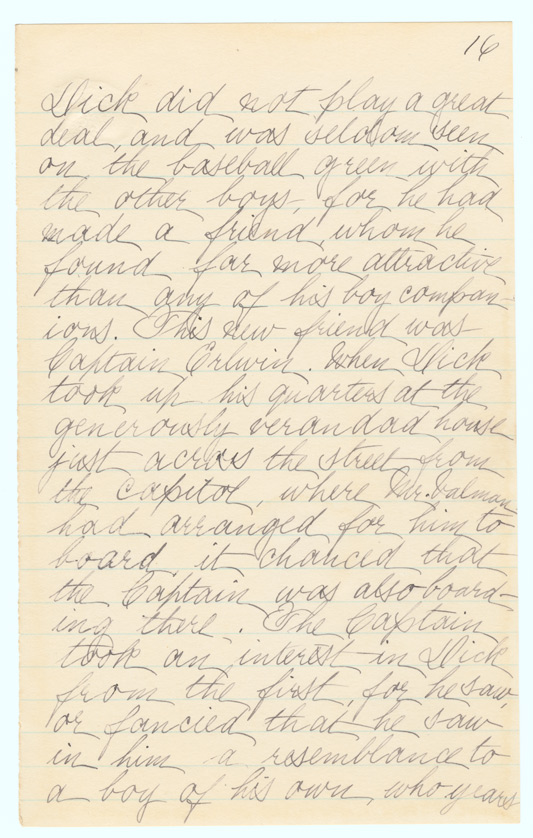 16
Dick did not play a great
deal, and was seldom seen
on the baseball green with
the other boys, for he had
made a friend whom he
found far more attractive
than any of his boy compan-
ions. This new friend was
Captain Erlwin. When Dick
took up his quarters at the
generously verandad house
just across the street from
the capitol, where Mr. Dalman
had arranged for him to
board, it chanced that
the Captain was also board-
ing there. The Captain
took an interest in Dick
from the first, for he saw,
or fancied that he saw
in him a resemblance to
a boy of his own, who years